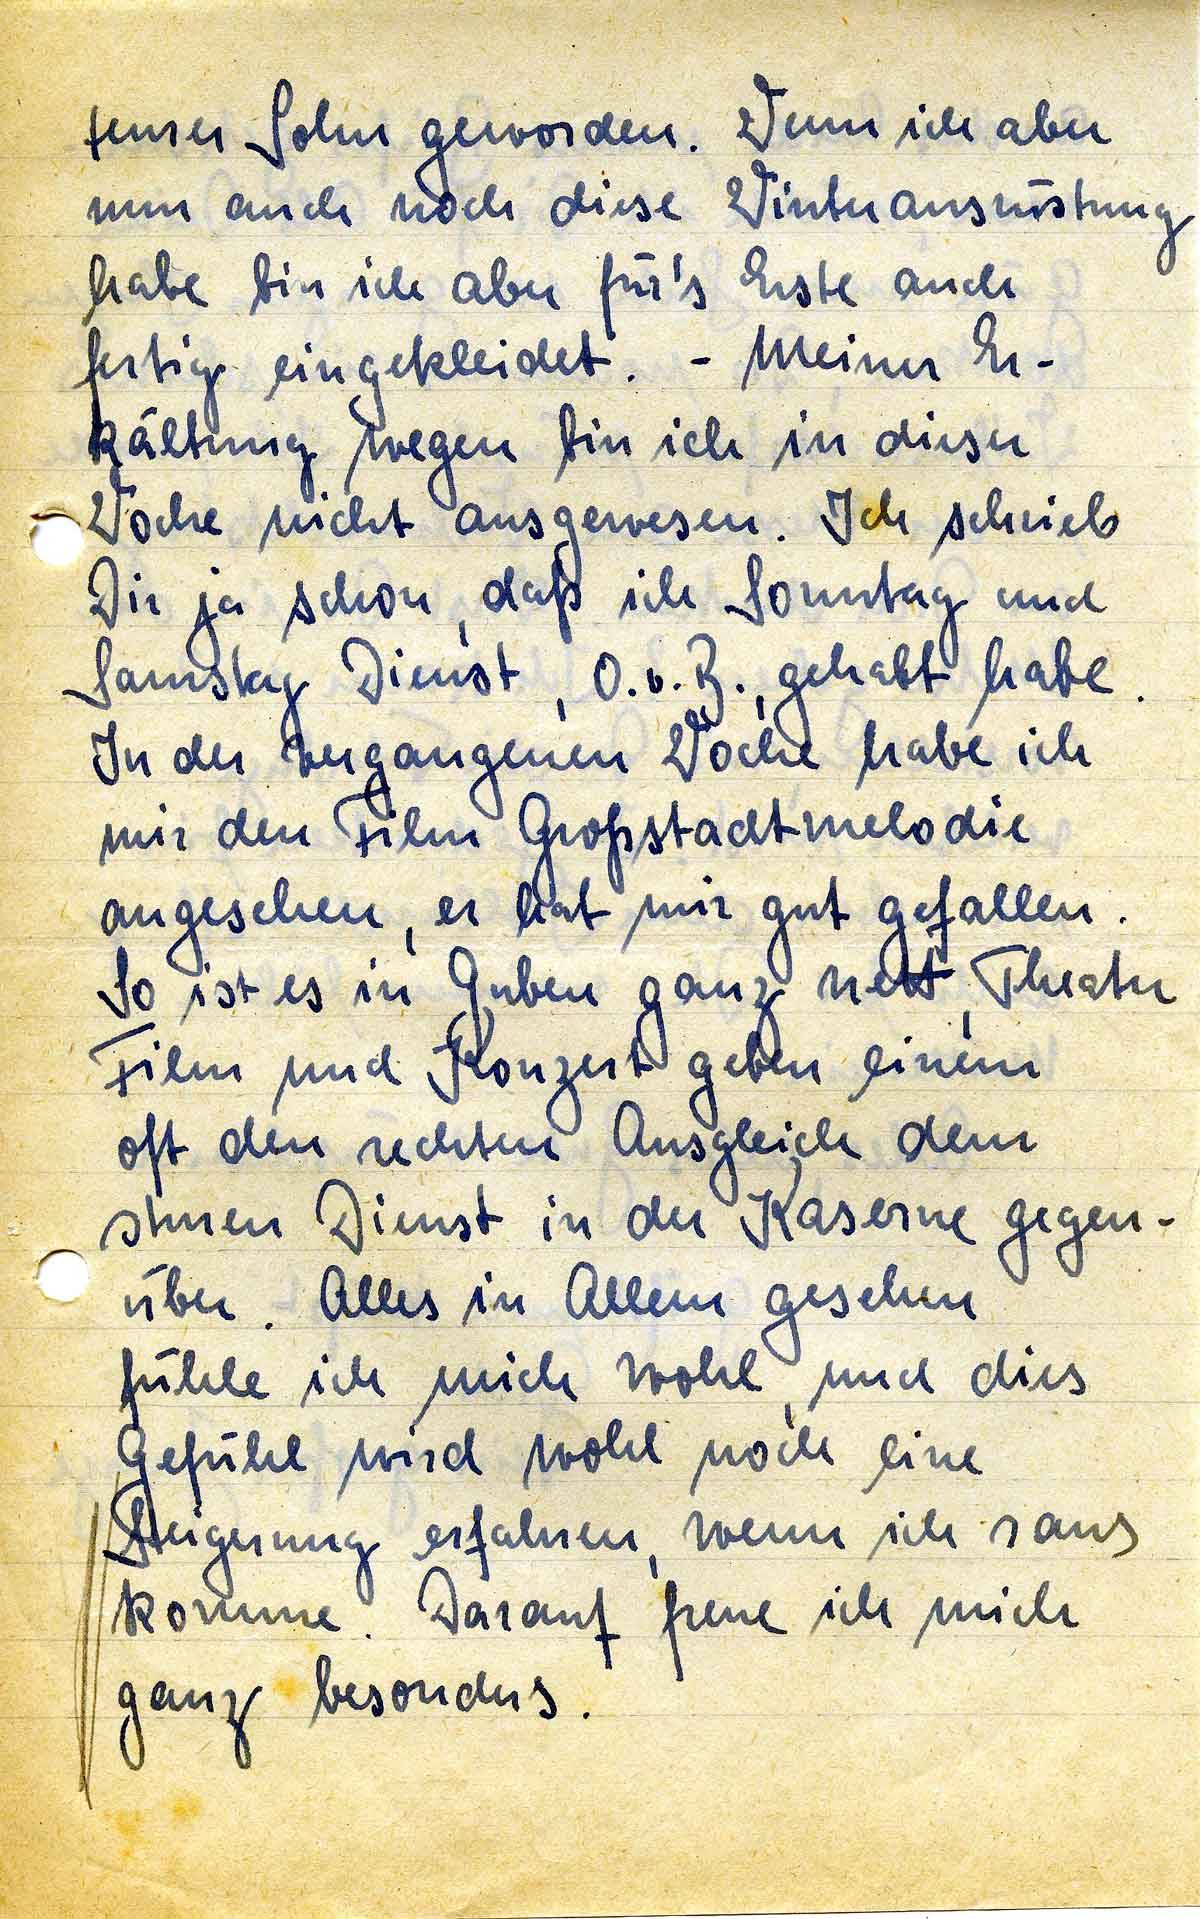 teurer Sohn geworden. Wenn ich aber
nun auch noch diese Winterausrüstung
habe bin ich aber für's Erste auch
fertig eingekleidet. - Meiner Er-
kältung wegen bin ich in dieser
Woche nicht ausgewesen. Ich schrieb
Dir ja schon, daß ich Sonntag und
Samstag Dienst, O.v.B., gehabt habe.
In der vergangenen Woche habe ich
mir den Film Großstadtmelodie
angesehen, er hat mir gut gefallen.
So ist es in Guben ganz nett, Theater
Film und Konzert geben einem
oft den rechten Ausgleich dem
sturen Dienst in der Kaserne gegen-
über. Alles in Allem gesehen
fühle ich mich wohl, und dies
Gefühl wird wohl noch eine
Steigerung erfahren, wenn ich raus
komme. Darauf freue ich mich
ganz besonders.